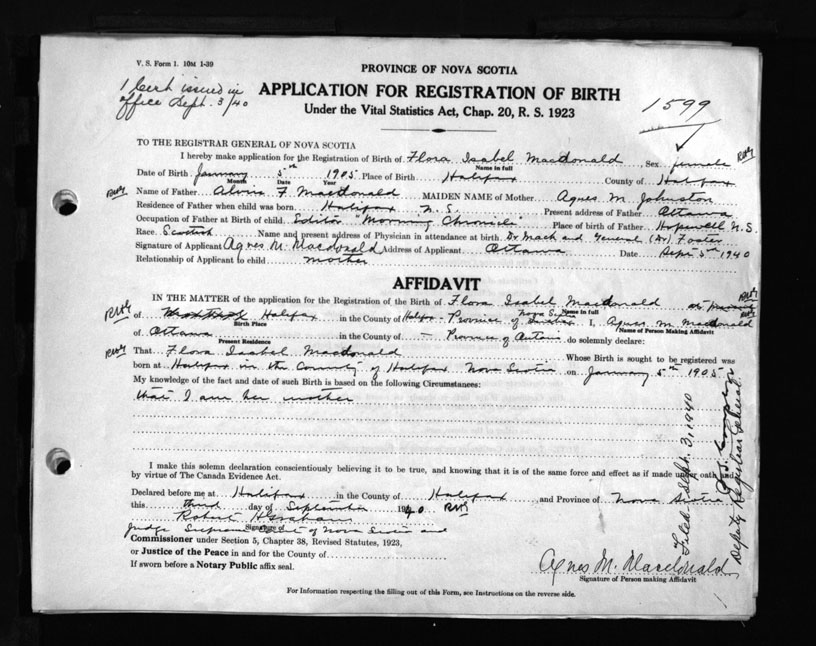 V. S. Form 1. 10M 1-39
1 Cert issued in
office Sept. 3/40
PROVINCE OF NOVA SCOTIA
APPLICATION FOR REGISTRATION OF BIRTH
Under the Vital Statistics Act, Chap. 20, R. S. 1923
1599
TO THE REGISTRAR GENERAL OF NOVA SCOTIA
I hereby make application for the Registration of Birth of Flora Isabel Macdonald Sex female
Name in full
Date of Birth January 5th 1905 Place of Birth Halifax County of Halifax
Month Date Year
Name of Father F Macdonald MAIDEN NAME of Mother Agnes M. Johnston
Residence of Father when child was born Halifax N.S. Present address of Father Ottawa
Occupation of Father at Birth of child Editor "Morning Chronicle" Place of birth of Father Hopewell N.S.
Race Scottish Name and present address of Physician in attendance at birth Dr
Signature of Applicant Agnes M. Macdonald Address of Applicant Ottawa Date Sept 3rd 1940
Relationship of Applicant to child mother
AFFIDAVIT
IN THE MATTER of the application for the Registration of the Birth of Flora Isabel Macdonald
Name in full
of Halifax in the County of Halifax - Province of Nova Scotia I, Agnes M Macdonald
Birth Place (Name of Person Making Affidavit
of Ottawa in the County of — Province of Ontario do solemnly declare:
Present Residence
That Flora Isabel Macdonald Whose Birth is sought to be registered was
born at Halifax in the County of Halifax Nova Scotia on January 5th 1905
My knowledge of the fact and date of such Birth is based on the following Circumstances:
that I am her mother
I make this solemn declaration conscientiously believing it to be true, and knowing that it is of the same force and effect as if made under oath and
by virtue of The Canada Evidence Act.
Declared before me at Halifax in the County of Halifax and Province of Nova Scotia
this third day of September 1940
Robert H Graham
Signature of
Judge Supreme Court of Nova Scotia and
Commissioner under Section 5, Chapter 38, Revised Statutes, 1923,
or Justice of the Peace in and for the County of
If sworn before a Notary Public affix seal.
Agnes M. Macdonald
Signature of Person making Affidavit
For Information respecting the filling out of this Form, see Instructions on the reverse side.
Filed Sept. 3, 1940
Deputy Registrar General